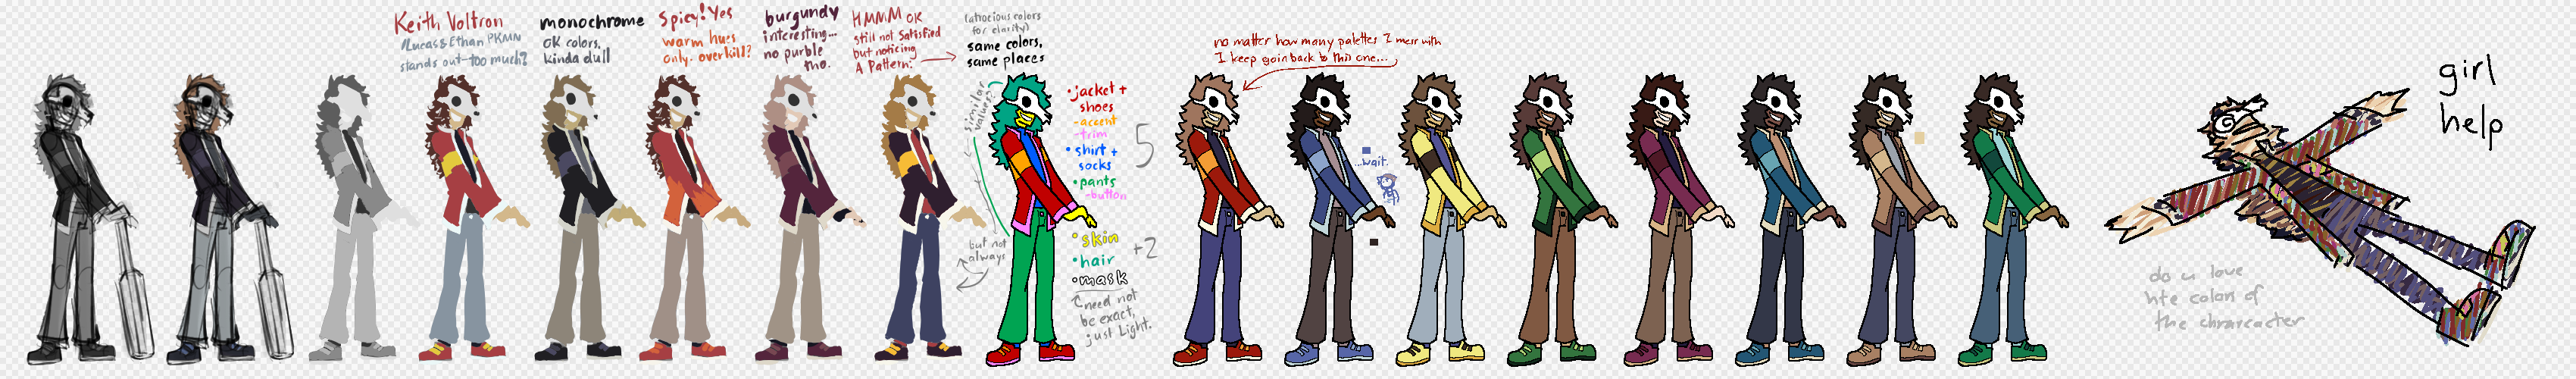 Keith Voltron
/Lucas & Ethan PKMN
stands out-too much?
monochrome
OK colors,
kinda dull
Spicy! Yes
warm hues
only. overkill?
burgundy
interesting...
no purble
tho.
HMMM OK
still not satisfied
but noticing
A Pattern.
(atrocious colors
for clarity)
same colors,
same places
similar
values?
but not
always
•jacket +
shoes
-accent
-trim
•shirt +
socks
•pants
-button
5
•skin
•hair
•mask
+2
need not
be exact,
just Light.
no matter how many palettes I mess with
I keep goin back to this one...
...wait.
girl
help
do u love
hte colors of
the chraracter